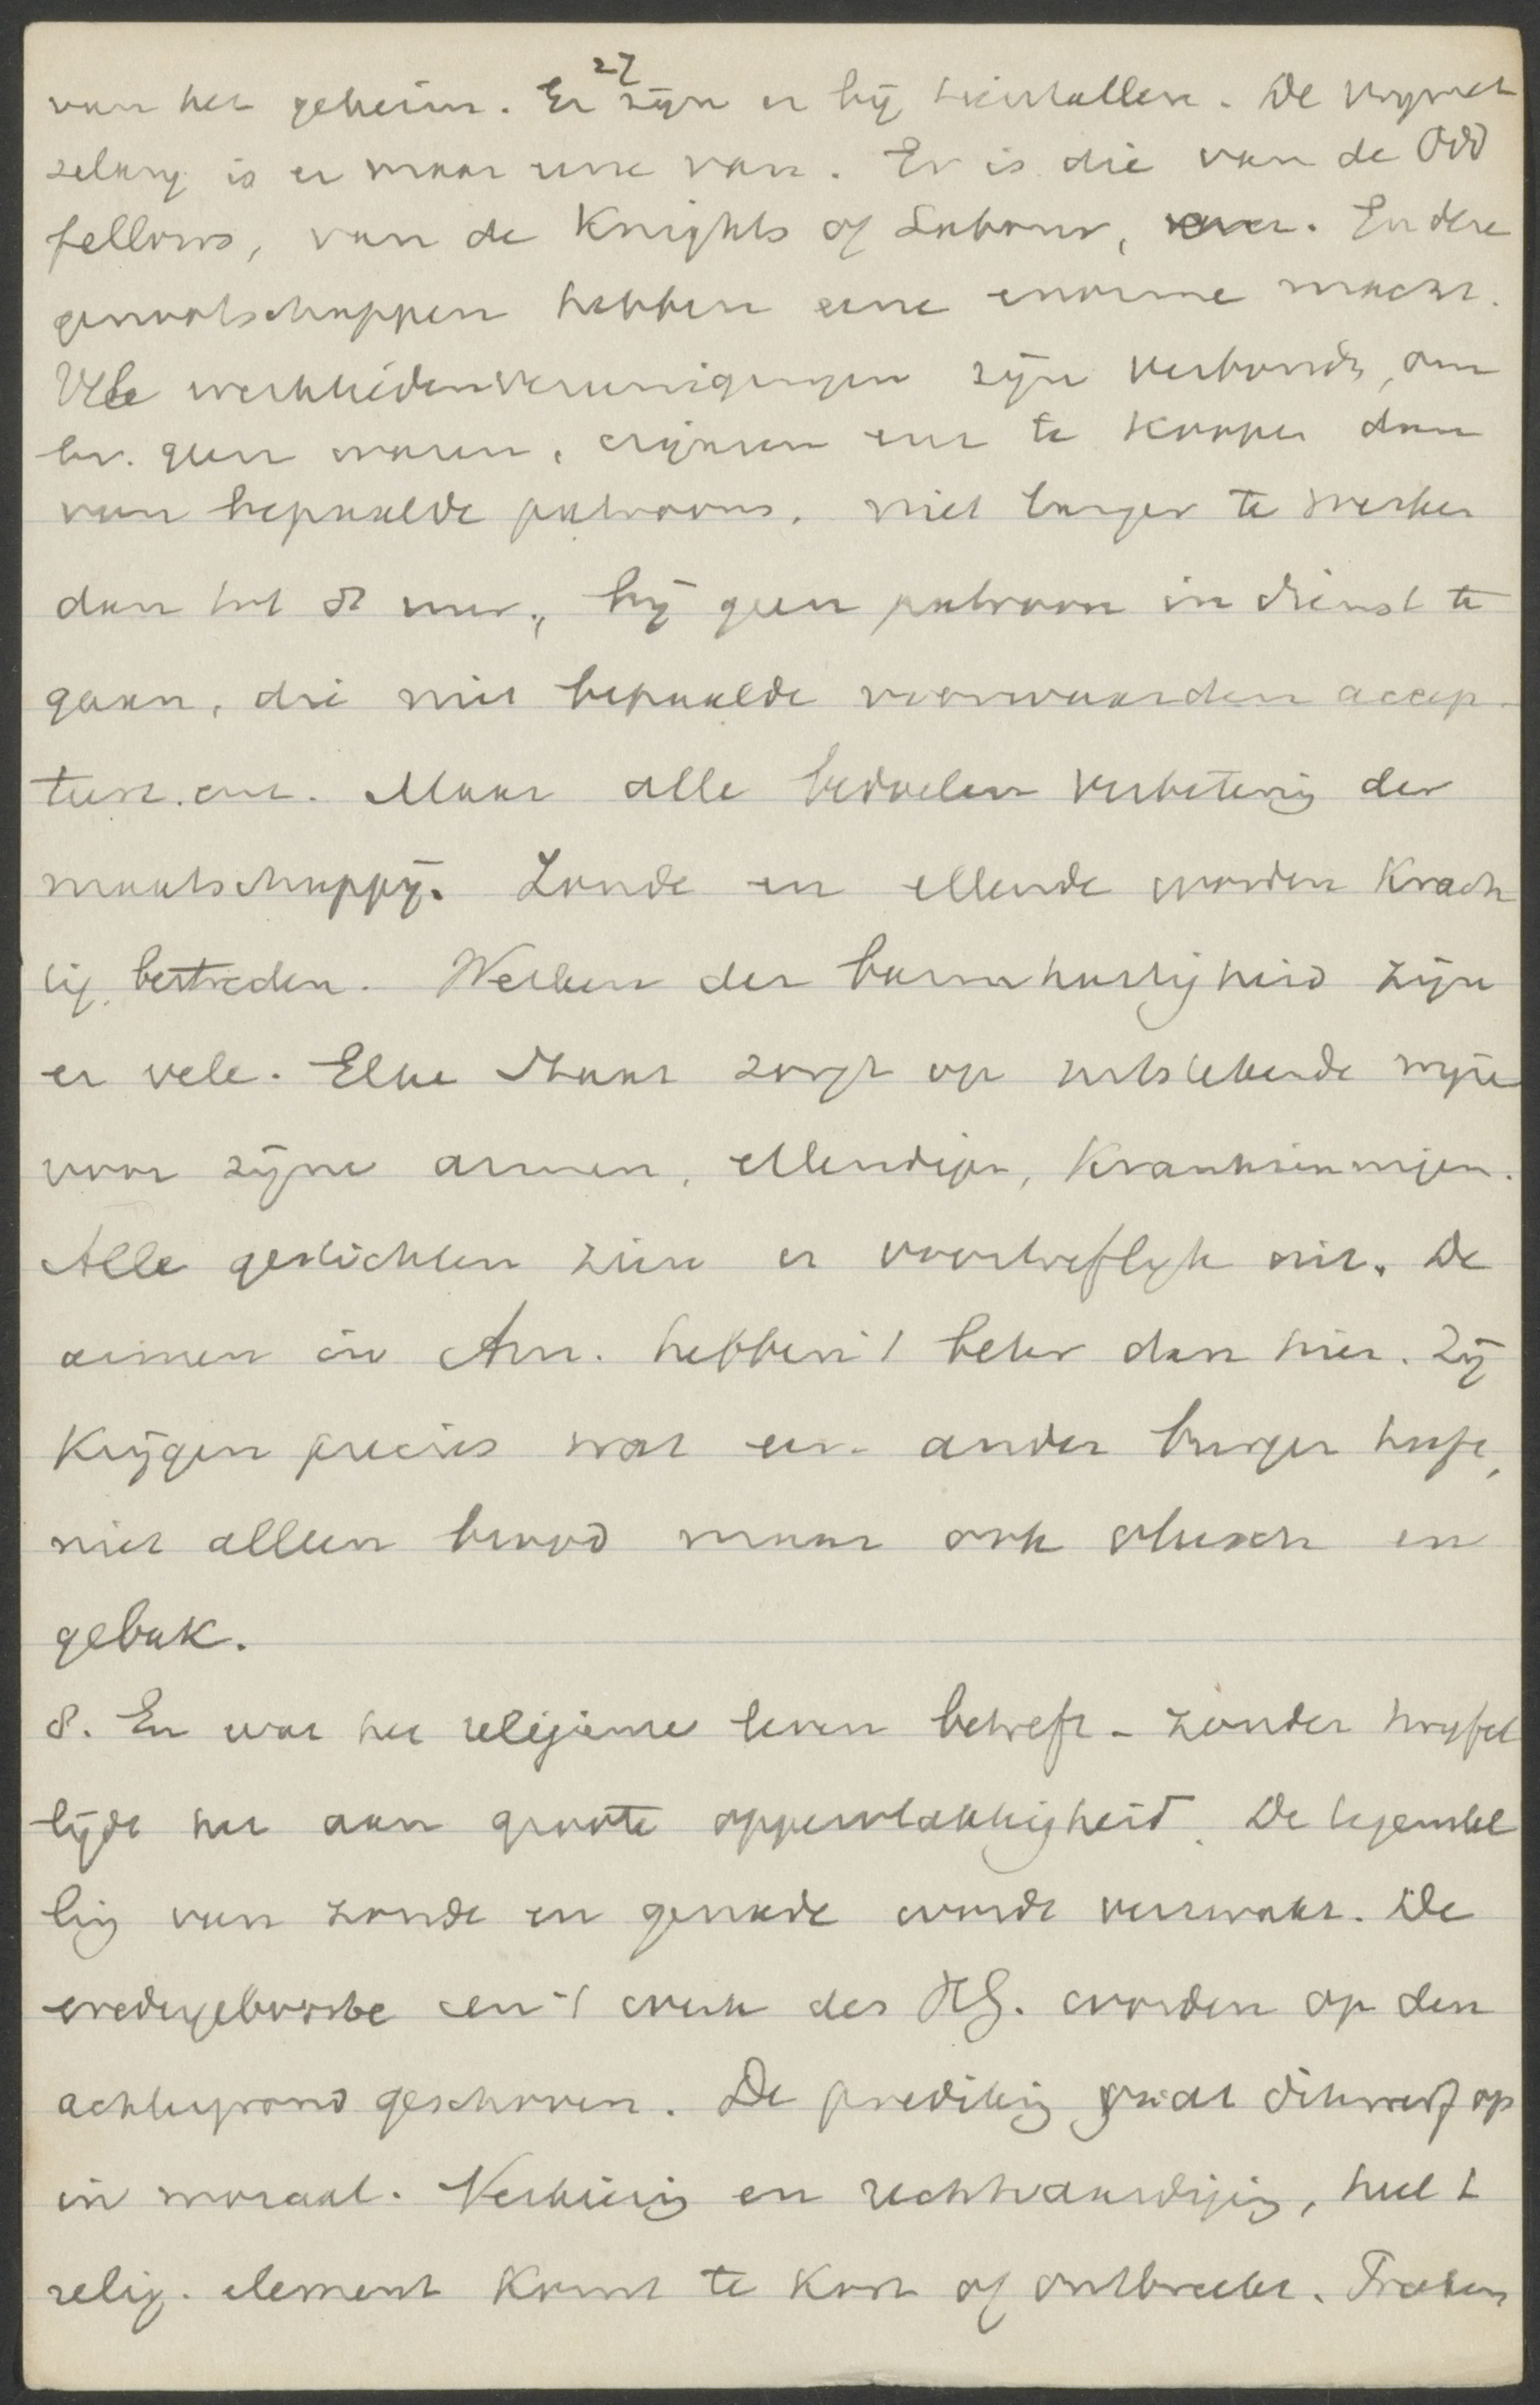 27
van het geheim. Er zijn er bij tientallen. De vrymet
selary is er maar eene van. Er is die van de Odd
fellows, van de Knights of Labour, enz. En deze
genootschappen hebben eene enorme macht.
Vele werkliedenvereenigingen zijn verbonds, om
bv. geen waren, cigaren enz te koopen dan
van bepaalde patroons, niet langer te werken
dan tot 8 uur, bij geen patroon in dienst te
gaan, die niet bepaalde voorwaarden accep-
teert. enz. Maar alle bedoelen verbeterig der
maatschappij. Zonde en ellende worden krach
tig bestreden. Werken der barmhartigheid zijn
er vele. Elke Staat zorgt op uitstekende wijze
voor zijne armen, ellendigen, krankzinnigen.
Alle gestichten zien er voortreflijk uit. De
armen in Am. hebben 't beter dan hier. Zij
krijgen precies wat een ander burger heeft,
niet alleen brood maar ook vleesch en
gebak.
8. En wat het religieuse leven betreft – zonder twyfel
lijdt het aan groote oppervlakkigheid. De tegenstel
lig van zonde en genade wordt verzwakt. De
wedergeboorte en 't werk des HG. worden op den
achtergrond geschoven. De predikig gaat dikwerf op
in moraal. Verkiezig en rechtvaardigig, heel 't
relig. element komt te kort of ontbreekt.